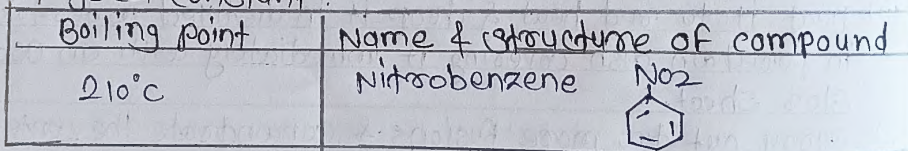 Boiling point Name & structure of compound
210°C Nitrobenzene NO2